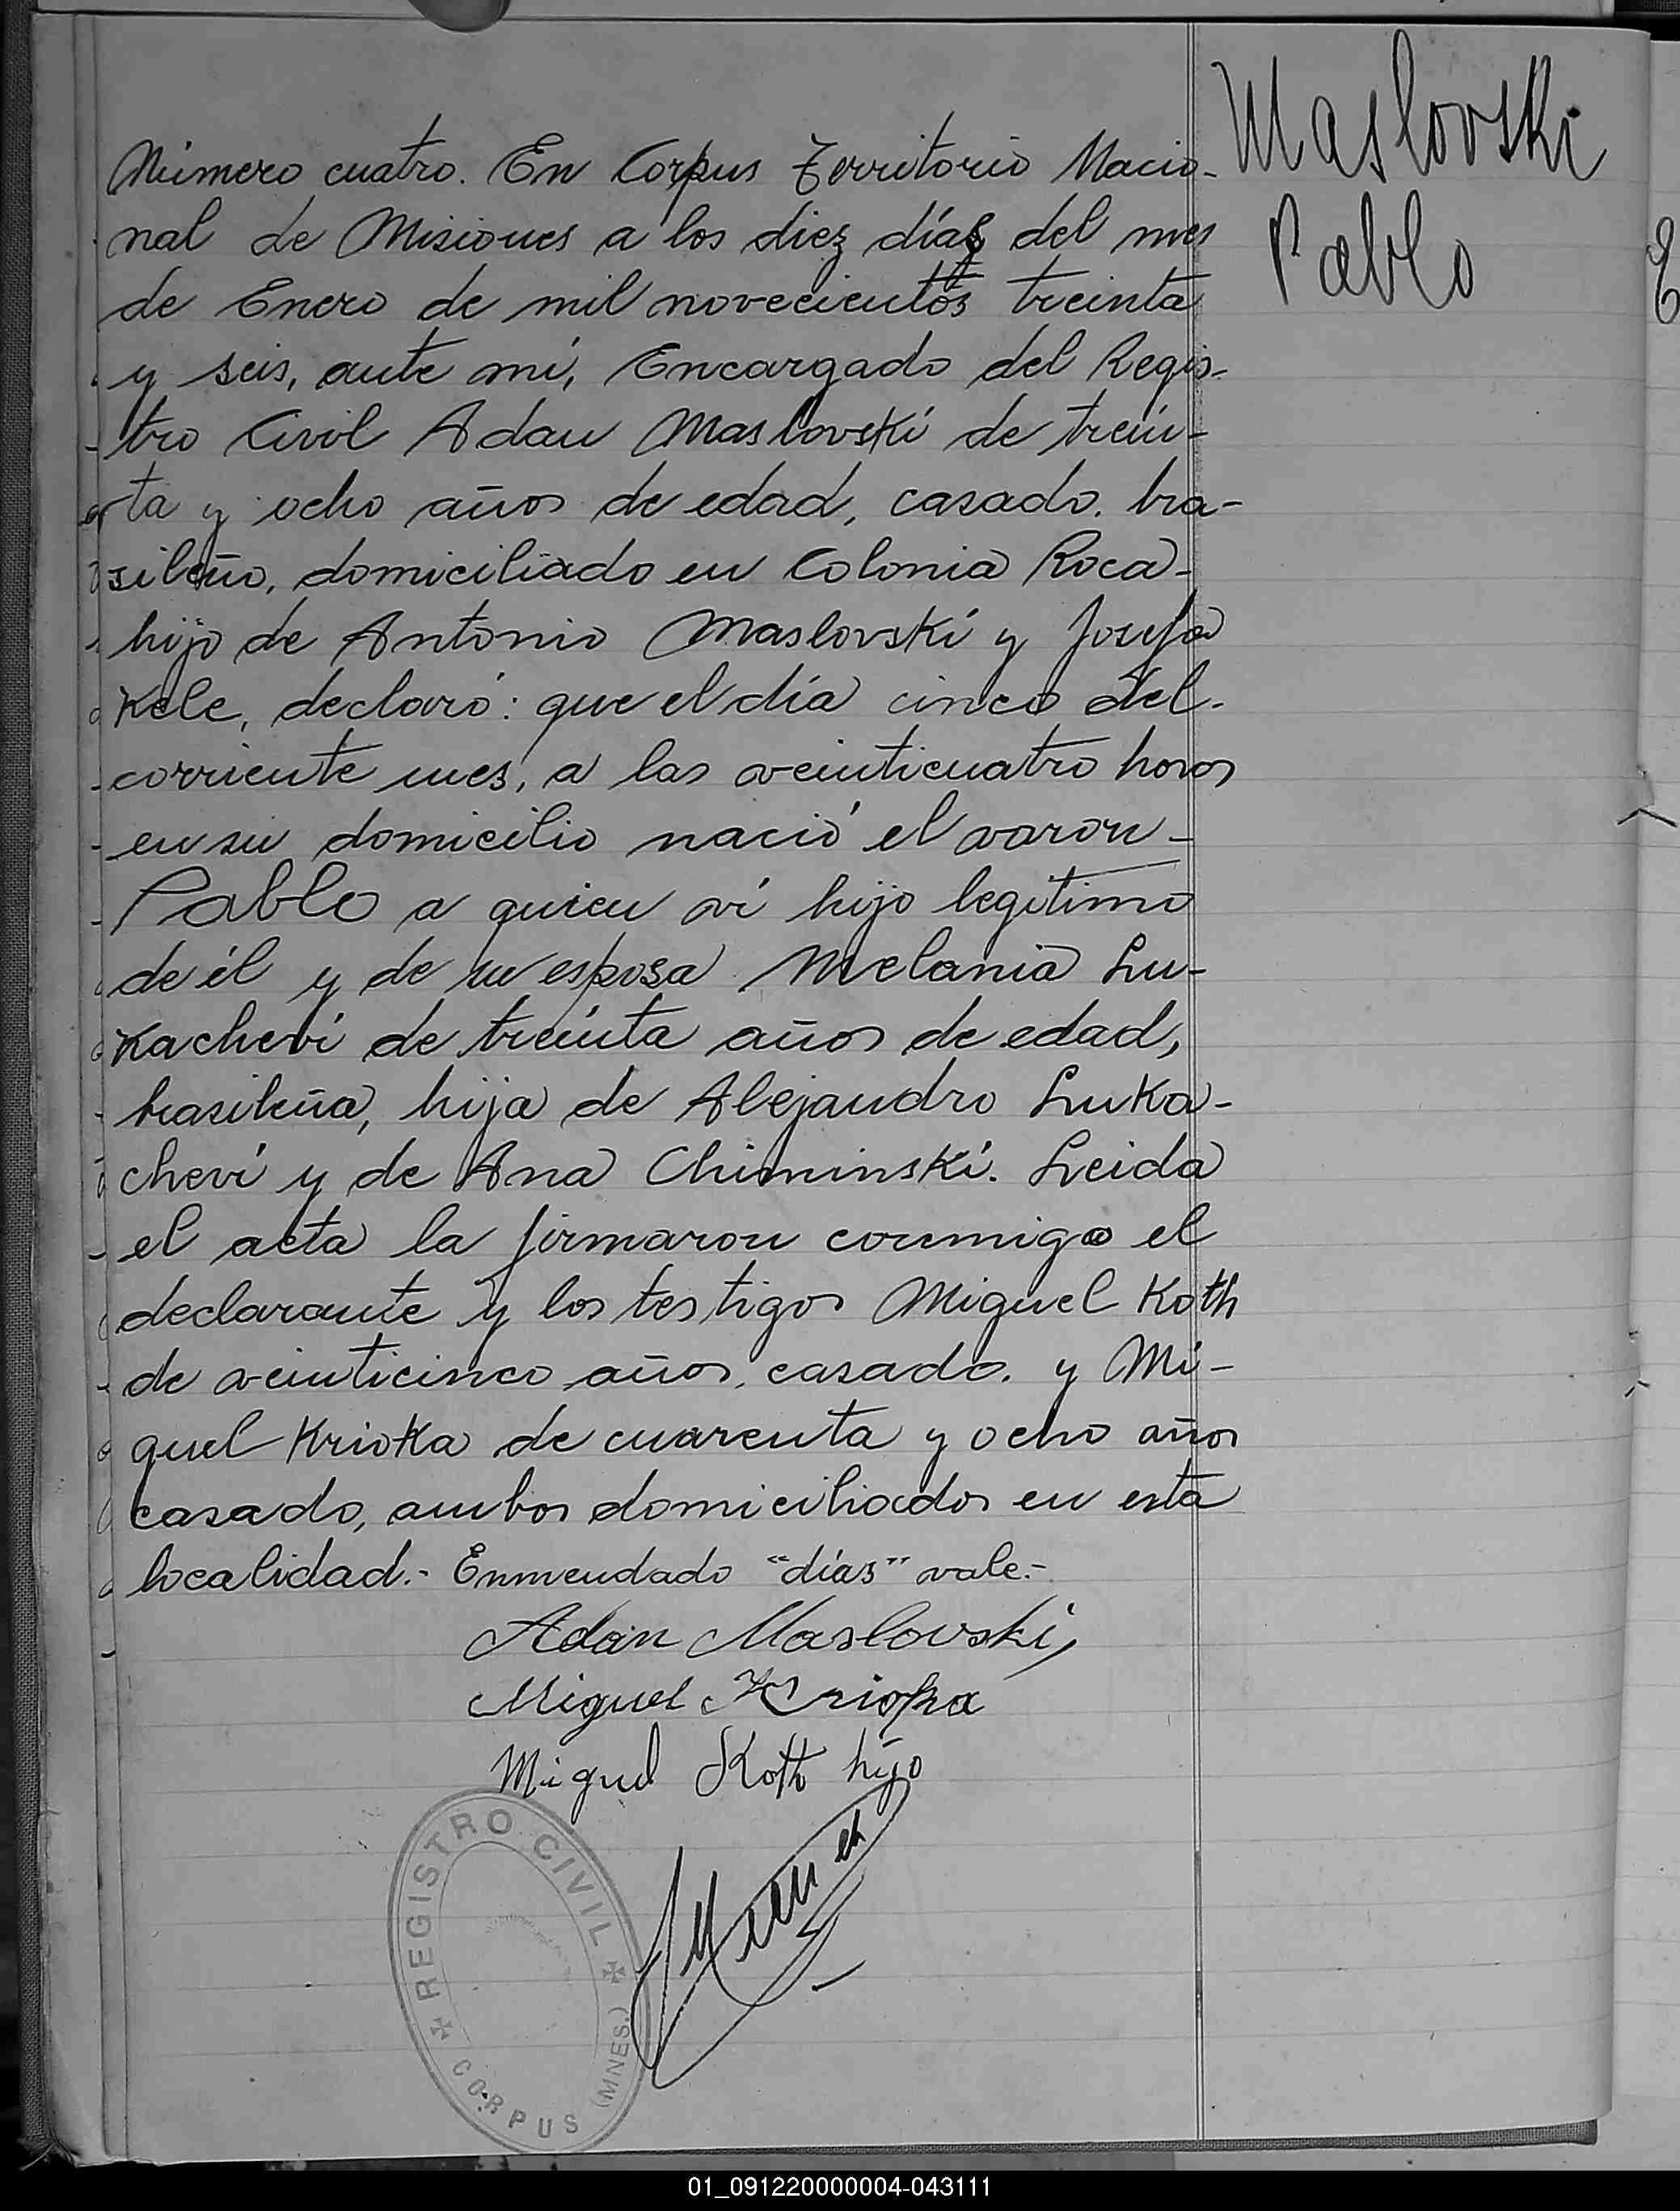 Maslovski
Pablo
Número cuatro. En Corpus Territorio Nacio-
nal de Misiones a los diez días del mes
de Enero de mil novecientos treinta
y seis, ante mí, Encargado del Regis-
tro Civil Adan Maslovski de trein-
ta y ocho años de edad, casado, bra-
sileño, domiciliado en Colonia Roca-
hijo de Antonio Maslovski y Josefa
Kele, declaró: que el día cinco del-
corriente mes, a las veinticuatro horas
en su domicilio nació el varon-
Pablo a quien ví hijo legítimo
de él y de su esposa Melania Lu-
kacheví de treinta años de edad,
brasileña, hija de Alejandro Luka-
cheví y de Ana Chiminski. Leida
el acta la firmaron conmigo el
declarante y los testigos Miguel Koth
de veinticinco años, casado. y Mi-
guel Krioka de cuarenta y ocho años
casado, ambos domiciliados en esta
localidad.- Enmendado "días" vale.-
Adan Maslovski
Miguel Krioka
Miguel Koth hijo
REGISTRO CIVIL
CORPUS (MNES.)
01_091220000004-043111